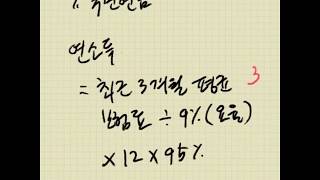 1. 국민연금
연소득
= 최근 3개월 평균 3
보험료 ÷ 9% (요율)
× 12 × 95%